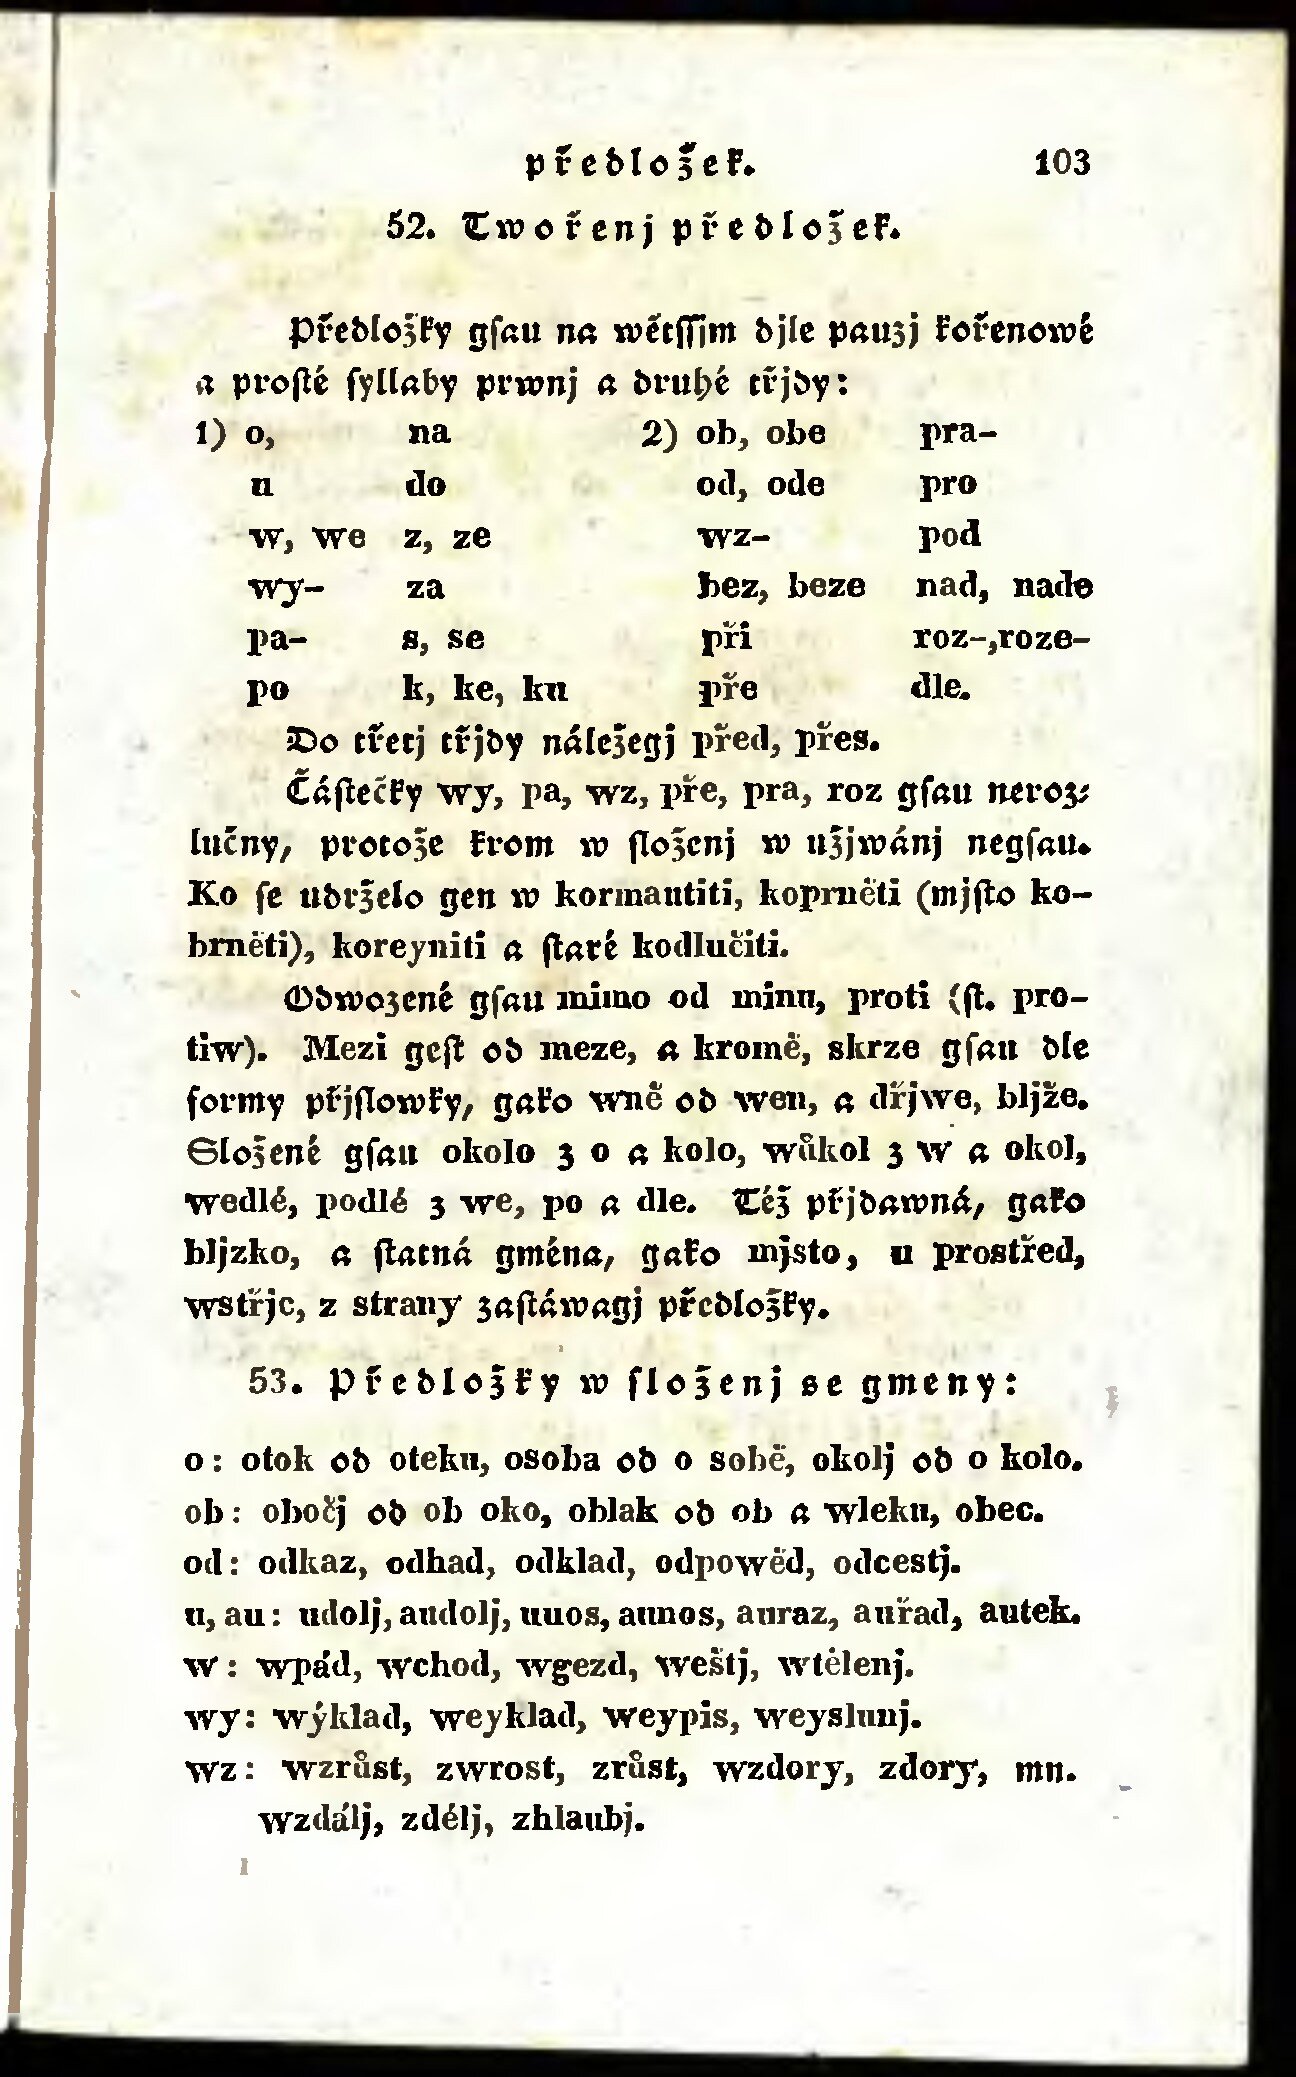 předložek. 103
52. Twořenj předložek.
Předložky gſau na wětſſjm djle pauzj kořenowé
a proſté ſyllaby prwnj a druhé třjdy:
1) o, na 2) ob, obe pra-
u do od, ode pro
w, we z, ze wz- pod
wy- za bez, beze nad, nade
pa- s, se při roz-, roze-
po k, ke, ku pře dle.
Do třetj třjdy náležegj před, přes.
Čáſtečky wy, pa, wz, pře, pra, roz gſau neroz-
lučny, protože krom w ſloženj w užjwánj negſau.
Ko ſe udrželo gen w kormautiti, koprněti (mjſto ko-
brněti), koreyniti a ſtaré kodlučiti.
Odwozené gſau mimo od minu, proti (ſt. pro-
tiw). Mezi geſt od meze, a kromě, skrze gſau dle
formy přjſlowky, gako wně od wen, a dřjwe, bljže.
Složené gſau okolo z o a kolo, wůkol z w a okol,
wedlé, podlé z we, po a dle. Též přjdawná, gako
bljzko, a ſtatná gména, gako mjsto, u prostřed,
wstřjc, z strany zaſtáwagj předložky.
53. Předložky w ſloženj se gmeny:
o: otok od oteku, osoba od o sobě, okolj od o kolo.
ob: obočj od ob oko, oblak od ob a wleku, obec.
od: odkaz, odhad, odklad, odpowěd, odcestj.
u, au: udolj, audolj, unos, aunos, auraz, auřad, autek.
w: wpád, wchod, wgezd, weštj, wtělenj.
wy: wýklad, weyklad, weypis, weyslunj.
wz: wzrůst, zwrost, zrůst, wzdory, zdory, mn.
wzdálj, zdélj, zhlaubj.